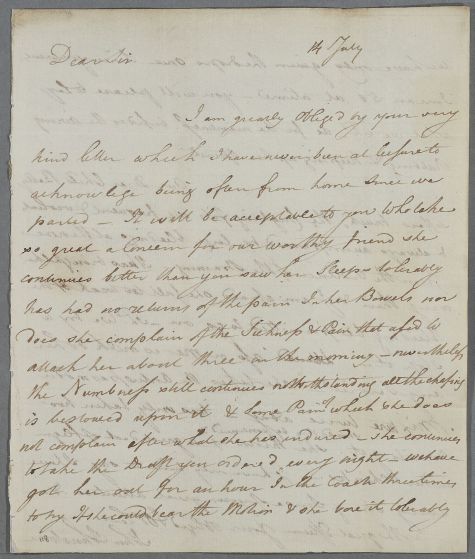 14 July
Dear Sir
I am greatly obliged by your very
kind letter which I have never been at leisure to
acknowlege being often from home since we
parted – It will be acceptable to you who take
so great a Concern for our worthy friend she
continues better than you saw her Sleeps tolerably
has had no returns of the pain In her Bowels nor
does she complain of the Sickness & Pain that used to
attack her about three in the morning – nevertheless
the Numbness still continues notwithstanding all the chafing
is bestowed upon it & Some Pain which she does
not complain after what she has endured she continues
to take the Draft you ordered every night – we have
got her out for an hour In the Coach three times
to try if she could bear the Motion & she bore it tolerably